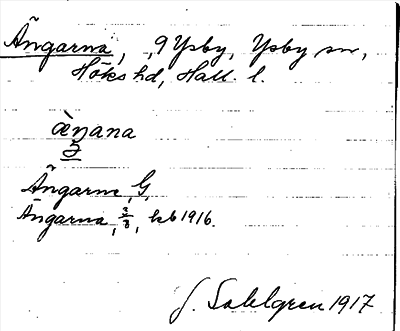 Ängarna, 9 Ysby, Ysby sn,
Höks hd, Hall. l.
æ̀ŋana
Ängarne, G,
Ängarna, 3/8, kb 1916.
J. Sahlgren 1917